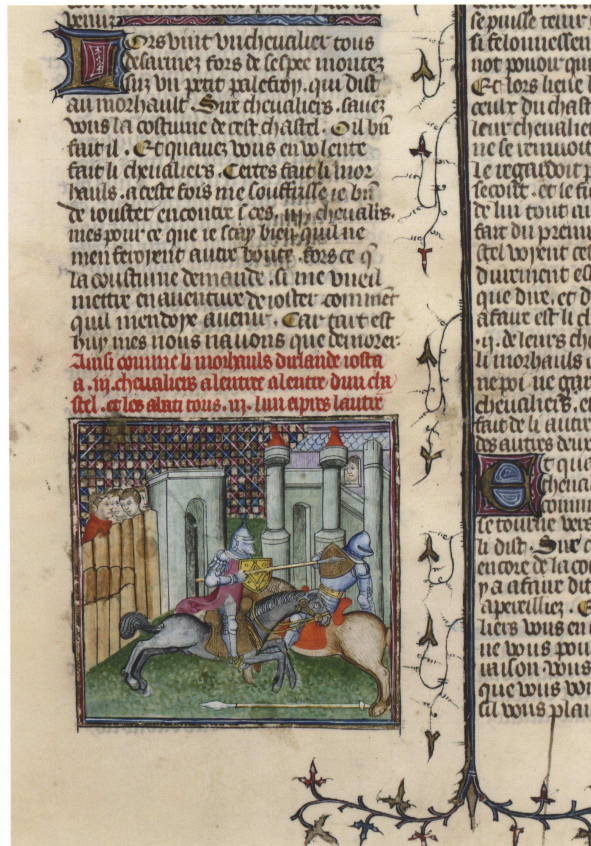 Lors vint vn cheualier tous
desarmez fors de sespee montez
suz vn petit palefroy. qui dist
au morhault. Sire cheualiers. sauez
vous la costume de cest chastel. Oil bñ
fait il. Et quauez vous en volente
fait li cheualiers. Certes fait li mor
hauls. a ceste fois me souffrisse ie bñ
de iouster encontre ces. iiij. cheualrs,
mes pour ce que ie scay bien quil ne
men feroient autre bonte. fors ce q̃
la coustume demande. si me vueil
mettre en auenture de ioster comment
quil mendoye auenir. Car tart est
huy mes nous nauons que demorer.
Ainsi comme li morhauls dirlande iosta
a .iij. cheualiers alentre alentre dun cha
stel. et les abati tous .iij. lun apres lautre
se puisse tenir
si felonnessen
not pouoir qui
Et lors lieue l
ceulx du chast
leur cheualier
ne se remuoit
le regardoit p
secoist. et le fi
de lui tout au
fait du premi
stel voient cel
durement es
que dire, et d
afaire est li ch
.ij. de leurs che
li morhauls
cheualiers, et
fait de li autre
des autres deux
Et qua
cheual
comm
se tourne vers
li dist. Sire c
encore de la co
y a afaire dit
apareilliez. E
liers vous en
ne vous pou
uaison vous
que vous vo
sil vous plai